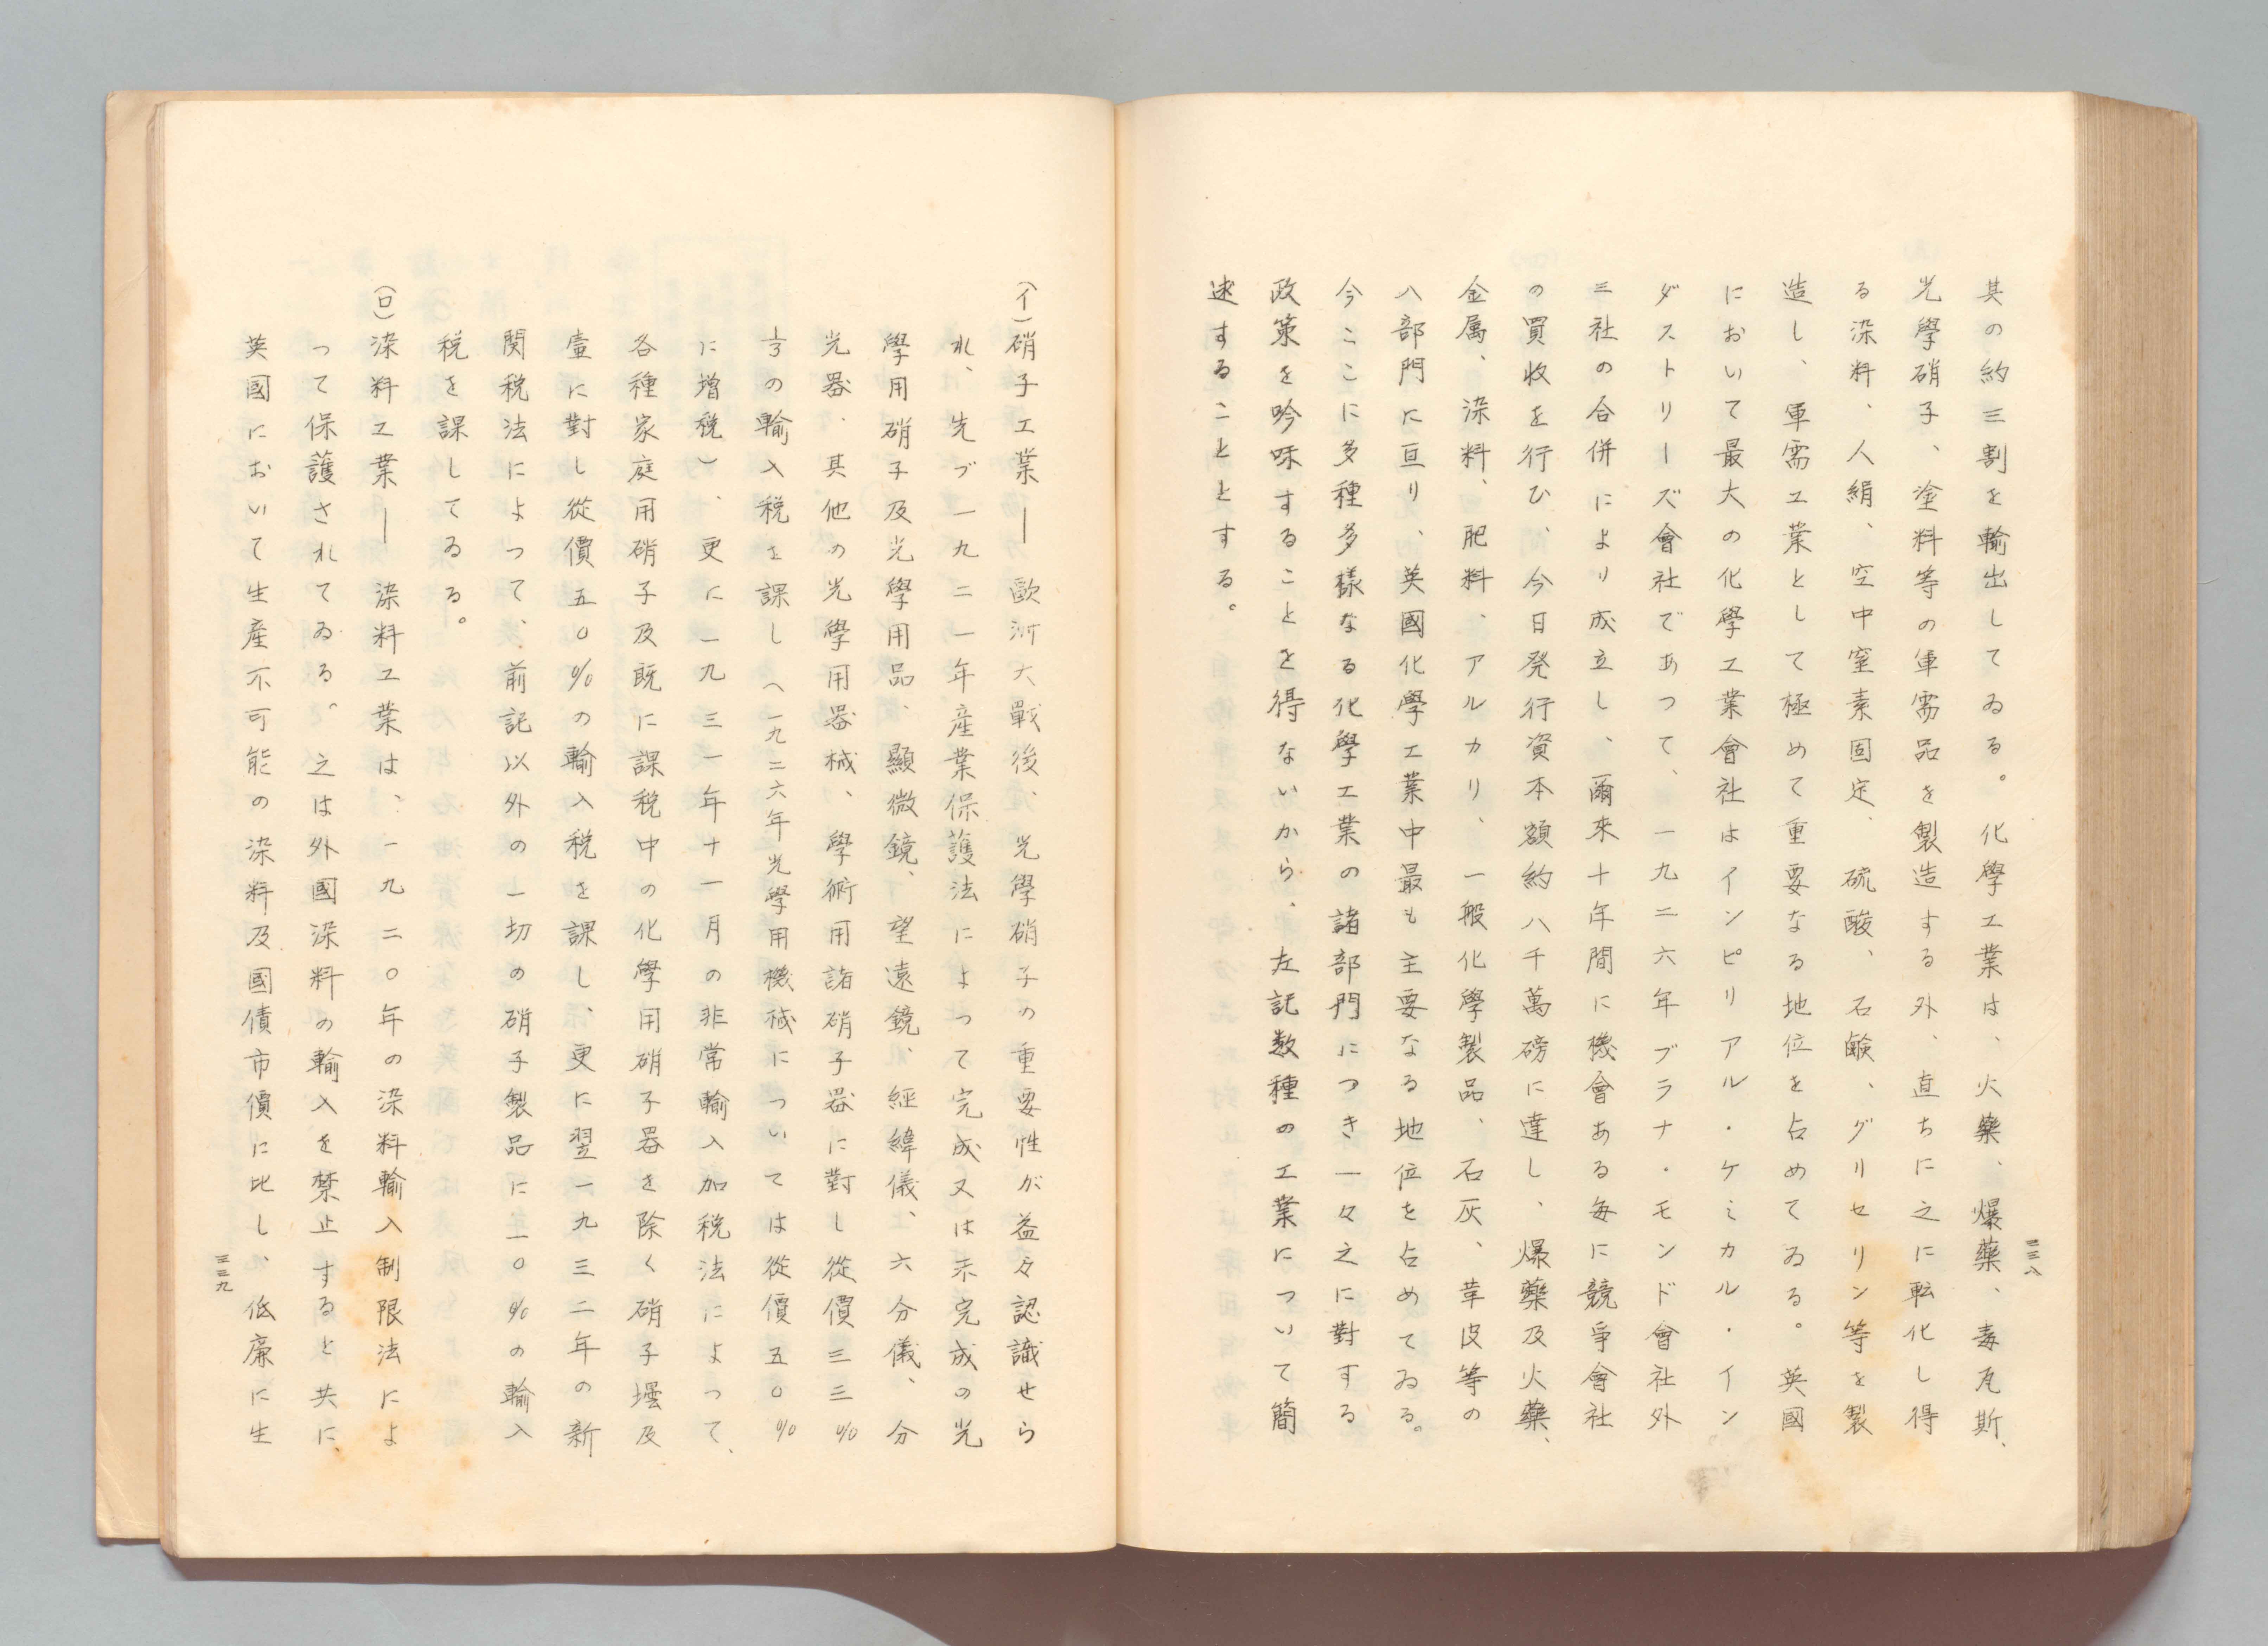 其の約三割を輸出してゐる。化學工業は、火藥、爆藥、毒瓦斯、
光學硝子、塗料等の軍需品を製造する外、直ちに之に転化し得
る染料、人絹、空中窒素固定、硫酸、石鹸、グリセリン等を製
造し、軍需工業として極めて重要なる地位を占めてゐる。英國
において最大の化學工業會社はインピリアル・ケミカル・イン
ダストリーズ會社であつて、一九二六年ブラナ・モンド會社外
三社の合併により成立し、爾來十年間に機會ある毎に競爭會社
の買收を行ひ、今日発行資本額約八千萬磅に達し、爆藥及火藥、
金属、染料、肥料、アルカリ、一般化學製品、石灰、革皮等の
八部門に亘り、英國化學工業中最も主要なる地位を占めてゐる。
今ここに多種多樣なる化學工業の諸部門につき一々之に對する
政策を吟味することを得ないから、左記数種の工業について簡
述することとする。
三三八
(イ)硝子工業―歐洲大戰後、光學硝子の重要性が益々認識せら
れ、先づ一九二一年産業保護法によつて完成又は未完成の光
學用硝子及光學用品、顯微鏡、望遠鏡、經緯儀、六分儀、分
光器、其他の光學用器械、學術用諸硝子器に對し從價三三%
⅓の輸入税を課し(一九二六年光學用機械については從價五〇%
に増税)、更に一九三一年十一月の非常輸入加税法によつて、
各種家庭用硝子及既に課税中の化學用硝子器を除く硝子壜及
壷に對し從價五〇%の輸入税を課し、更に翌一九三二年の新
関税法によつて、前記以外の一切の硝子製品に二〇%の輸入
税を課してゐる。
(ロ)染料工業―染料工業は、一九二〇年の染料輸入制限法によ
つて保護されてゐる。之は外國染料の輸入を禁止すると共に、
英國において生産不可能の染料及國債市價に比し、低廉に生
三三九